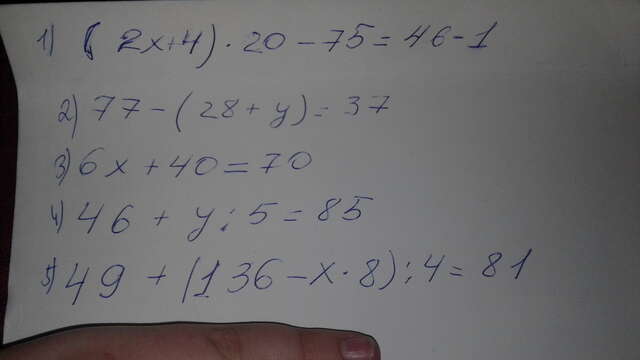 1) (2x+4)·20-75=46-1
2) 77-(28+y)=37
3) 6x+40=70
4) 46+y:5=85
5) 49+(136-x·8):4=81